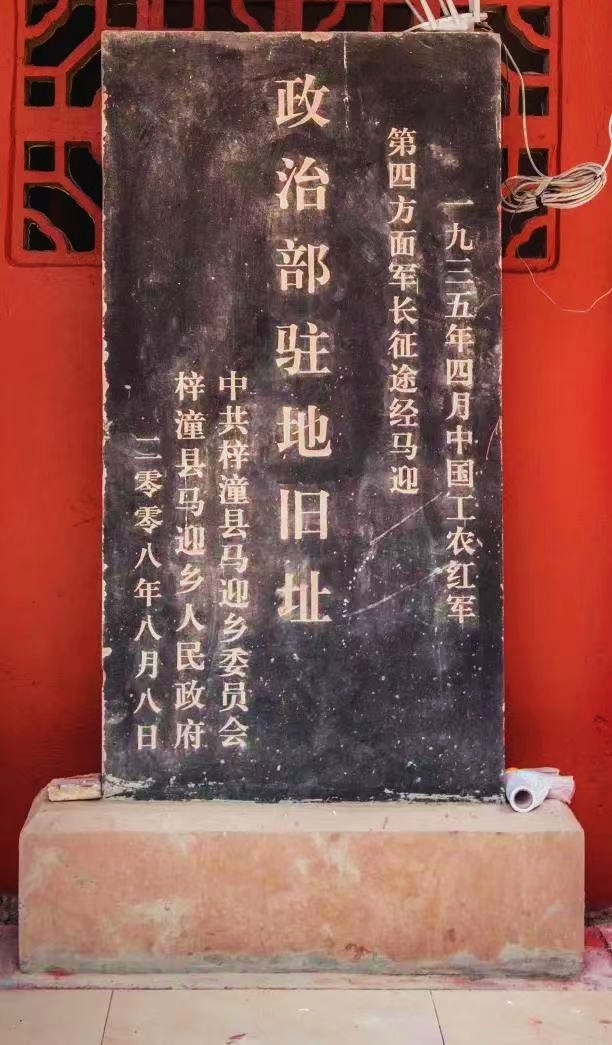 一九三五年四月中国工农红军
第四方面军长征途经马迎
政治部驻地旧址
中共梓潼县马迎乡委员会
梓潼县马迎乡人民政府
二零零八年八月八日